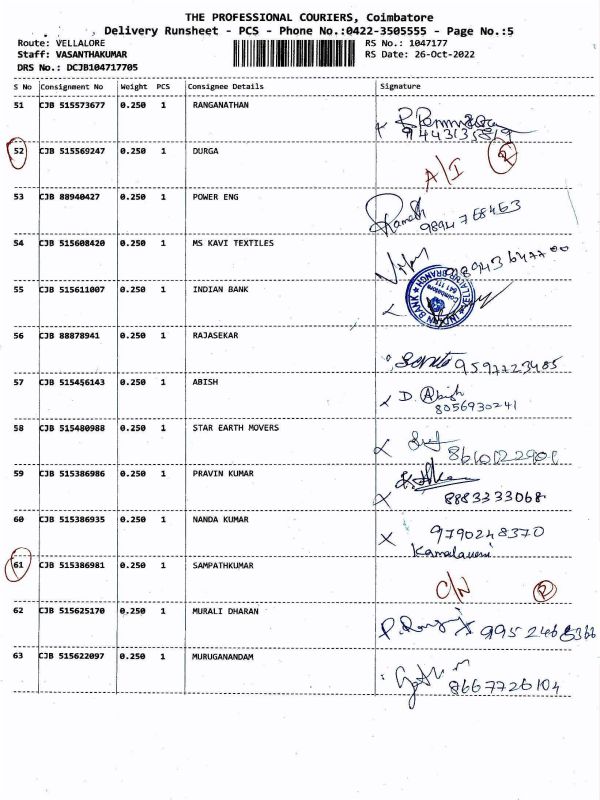 THE PROFESSIONAL COURIERS, Coimbatore
Delivery Runsheet - PCS - Phone No.:0422-3505555 - Page No.:5
Route: VELLALORE RS No.: 1047177
Staff: VASANTHAKUMAR RS Date: 26-Oct-2022
DRS No.: DCJB104717705
S No Consignment No Weight PCS Consignee Details Signature
51 CJB 515573677 0.250 1 RANGANATHAN
52 CJB 515569247 0.250 1 DURGA A/I R
53 CJB 88940427 0.250 1 POWER ENG Ramesh 9894768463
54 CJB 515608420 0.250 1 MS KAVI TEXTILES
55 CJB 515611007 0.250 1 INDIAN BANK
INDIAN BANK VELLALUR BRANCH Coimbatore 641 111
56 CJB 88878941 0.250 1 RAJASEKAR 9597723485
57 CJB 515456143 0.250 1 ABISH D. Abish
8056930241
58 CJB 515480988 0.250 1 STAR EARTH MOVERS
59 CJB 515386986 0.250 1 PRAVIN KUMAR
8883333068
60 CJB 515386935 0.250 1 NANDA KUMAR 9790248370
61 CJB 515386981 0.250 1 SAMPATHKUMAR C/N R
62 CJB 515625170 0.250 1 MURALI DHARAN
63 CJB 515622097 0.250 1 MURUGANANDAM
8667726104